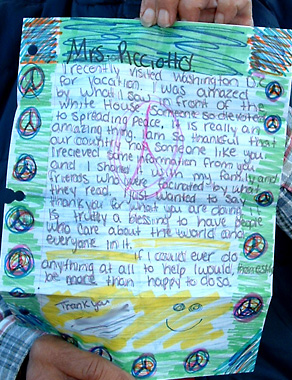 Mrs. Picciotto
I recently visited Washington D.C
for vacation. I was amazed
by what I saw in front of the
White House. Someone so devoted
to spreading peace. It is really an
amazing thing. I am so thankful that
our country has someone like you.
I recieved some information from you
and I shared it with my family and
friends who were facinated by what
they read. I just wanted to say
thank you for what you are doing. It
is trully a blessing to have people
who care about the world and
everyone in it.
If I could ever do
anything at all to help I would, honestly,
be more than happy to do so.
Thank you